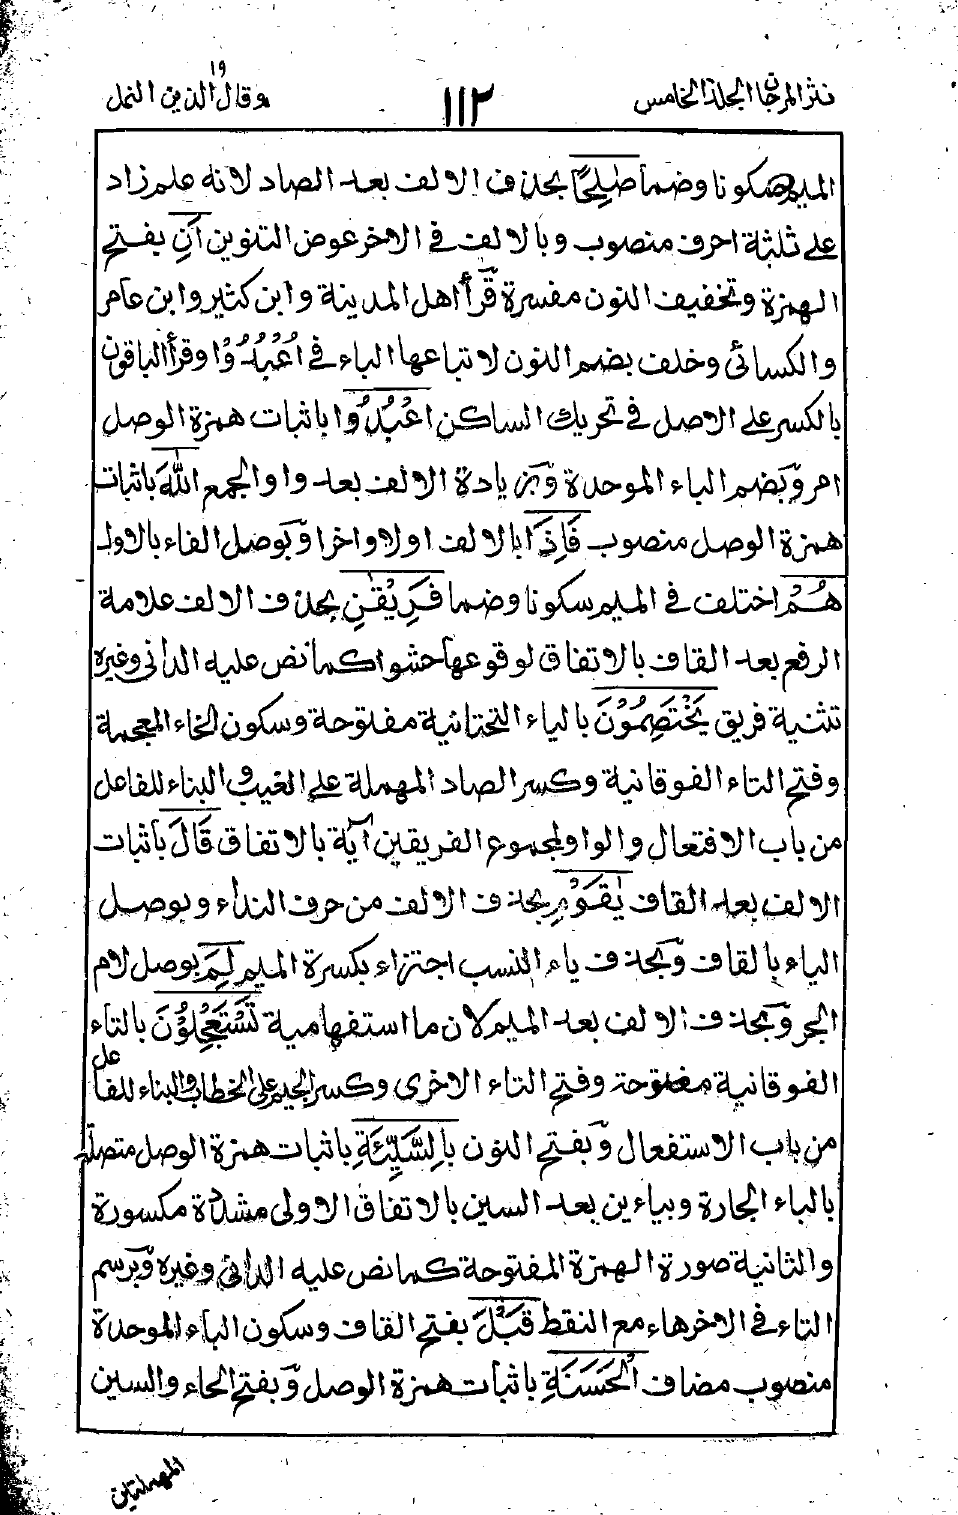 نثر المرجان الجلد الخامس
١١٢
وقال الذين ١٩ النمل
الميم سكونا وضما صٰلِحًا بحذف الالف بعد الصاد لانه علم زاد
على ثلثة احرف منصوب وبالالف في الاخر عوض التنوين اَنِ بفتح
الهمزة وتخفيف النون مفسرة قرأ اهل المدينة وابن كثير وابن عامر
والكسائي وخلف بضم النون لاتباعها الباء في اعْبُدُوْا وقرأ الباقون
بالكسر على الاصل في تحريك الساكن اعْبُدُوا باثبات همزة الوصل
امر وَبضم الباء الموحدة وَبزيادة الالف بعد واو الجمع اللّٰهَ باثبات
همزة الوصل منصوب فَاِذَا بالالف اولا واخرا وَبوصل الفاء بالاول
هُمْ اختلف في الميم سكونا وضما فَرِيْقٰنِ بحذف الالف علامة
الرفع بعد القاف بالاتفاق لوقوعها حشوا كما نص عليه الداني وغيره
تثنية فريق يَخْتَصِمُوْنَ بالياء التحتانية مفتوحة وسكون الخاء المعجمة
وفتح التاء الفوقانية وكسر الصاد المهملة على الغيب والبناء للفاعل
من باب الافتعال والواو لمجموع الفريقين آية بالاتفاق قَالَ باثبات
الالف بعد القاف يٰقَوْمِ بحذف الالف من حرف النداء وبوصل
الياء بالقاف وَبحذف ياء النسب اجتزاء بكسرة الميم لِمَ بوصل لام
الجر وَبحذف الالف بعد الميم لان ما استفهامية تَسْتَعْجِلُوْنَ بالتاء
الفوقانية مفتوحة وفتح التاء الاخرى وكسر الجيم على الخطاب والبناء للفاعل
من باب الاستفعال وَبفتح النون بِالسَّيِّئَةِ باثبات همزة الوصل متصلة
بالباء الجارة وبياءين بعد السين بالاتفاق الاولى مشددة مكسورة
والثانية صورة الهمزة المفتوحة كما نص عليه الداني وغيره وَبرسم
التاء في الاخر هاء مع النقط قَبْلَ بفتح القاف وسكون الباء الموحدة
منصوب مضاف الْحَسَنَةِ باثبات همزة الوصل وَبفتح الحاء والسين
المهملتين